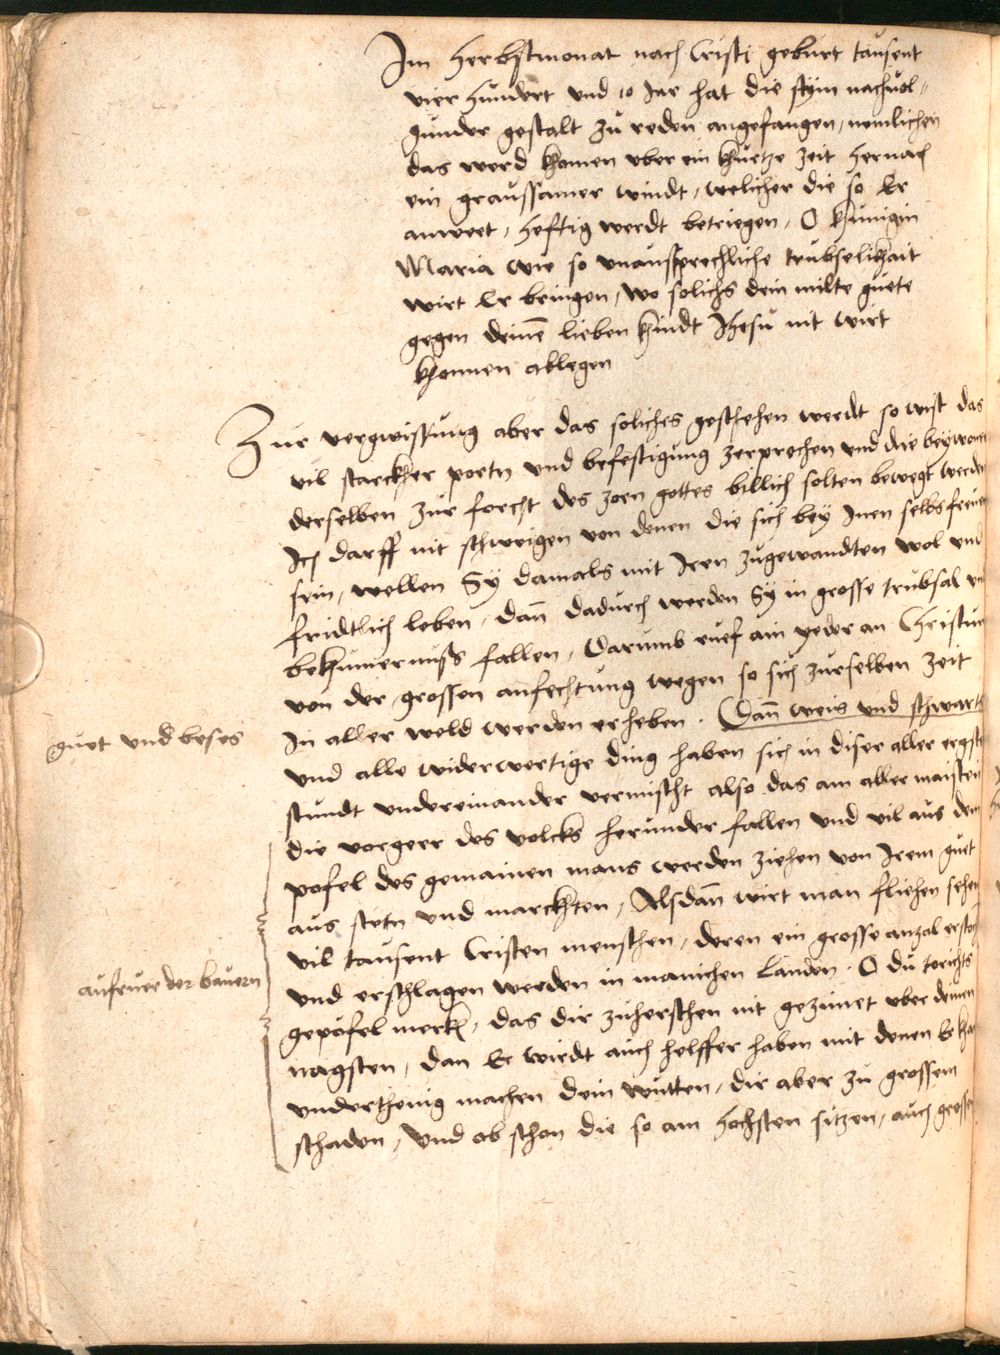 Im Herbstmonat nach Cristi geburt tausent
vier hundert und 10 Jar hat die stym nachuol-
gunder gestalt zu reden angefangen, nemlichen
das werd khomen uber ein khurtze zeit hernach
ein graussamer windt, welicher die so Er
anweet, heftig werdt betriegen, O khunigin
Maria wie so unaussprechliche trubselikhait
wirt Er bringen, wo solichs dein milte guete
gegen deinem lieben khindt Jhesu nit wirt
khonnen ablegen
Zur vergwissung aber das soliches geschehen werdt so wist das
vil starckher portn und befestigung zerprochen und die beywoner
derselben zur forcht des zorn gottes billich solten bewegt werden
Ich darff nit schweigen von denen die sich bey Inen selbs freuen
sein, wellen Sy damals mit Iren zugewandten wol und
fridtlich leben, dann dadurch werden Sy in grosse trubsal und
bekhumernuss fallen, Darumb ruef ain yeder an Christum
von der grossen anfechtung wegen so sich zurselben zeit
In aller weld werden erheben. Dann weis und schwartz
guet und beses
und alle widerwertige ding haben sich in diser aller ergsten
stundt undereinander vermischt also das am aller maisten
die vorgeer des volcks herunder fallen und vil aus dem
pofel des gemainen mans werden ziehen von Irem guet
aus stetn und marckhten, Alsdann wirt man fliehen sehen
vil tausent Cristen menschen, deren ein grosse anzal erstochen
aufruer der bauern
und erschlagen werden in manichen Landen. O du torichts
gepofel merkh, das dir zuherschen nit gezimet uber deinen
nagsten, dan Er wirdt auch helffer haben mit denen
underthenig machen dein wutten, dir aber zu grossem
schaden, Und ob schon die so am hochsten sitzen, auch grossen